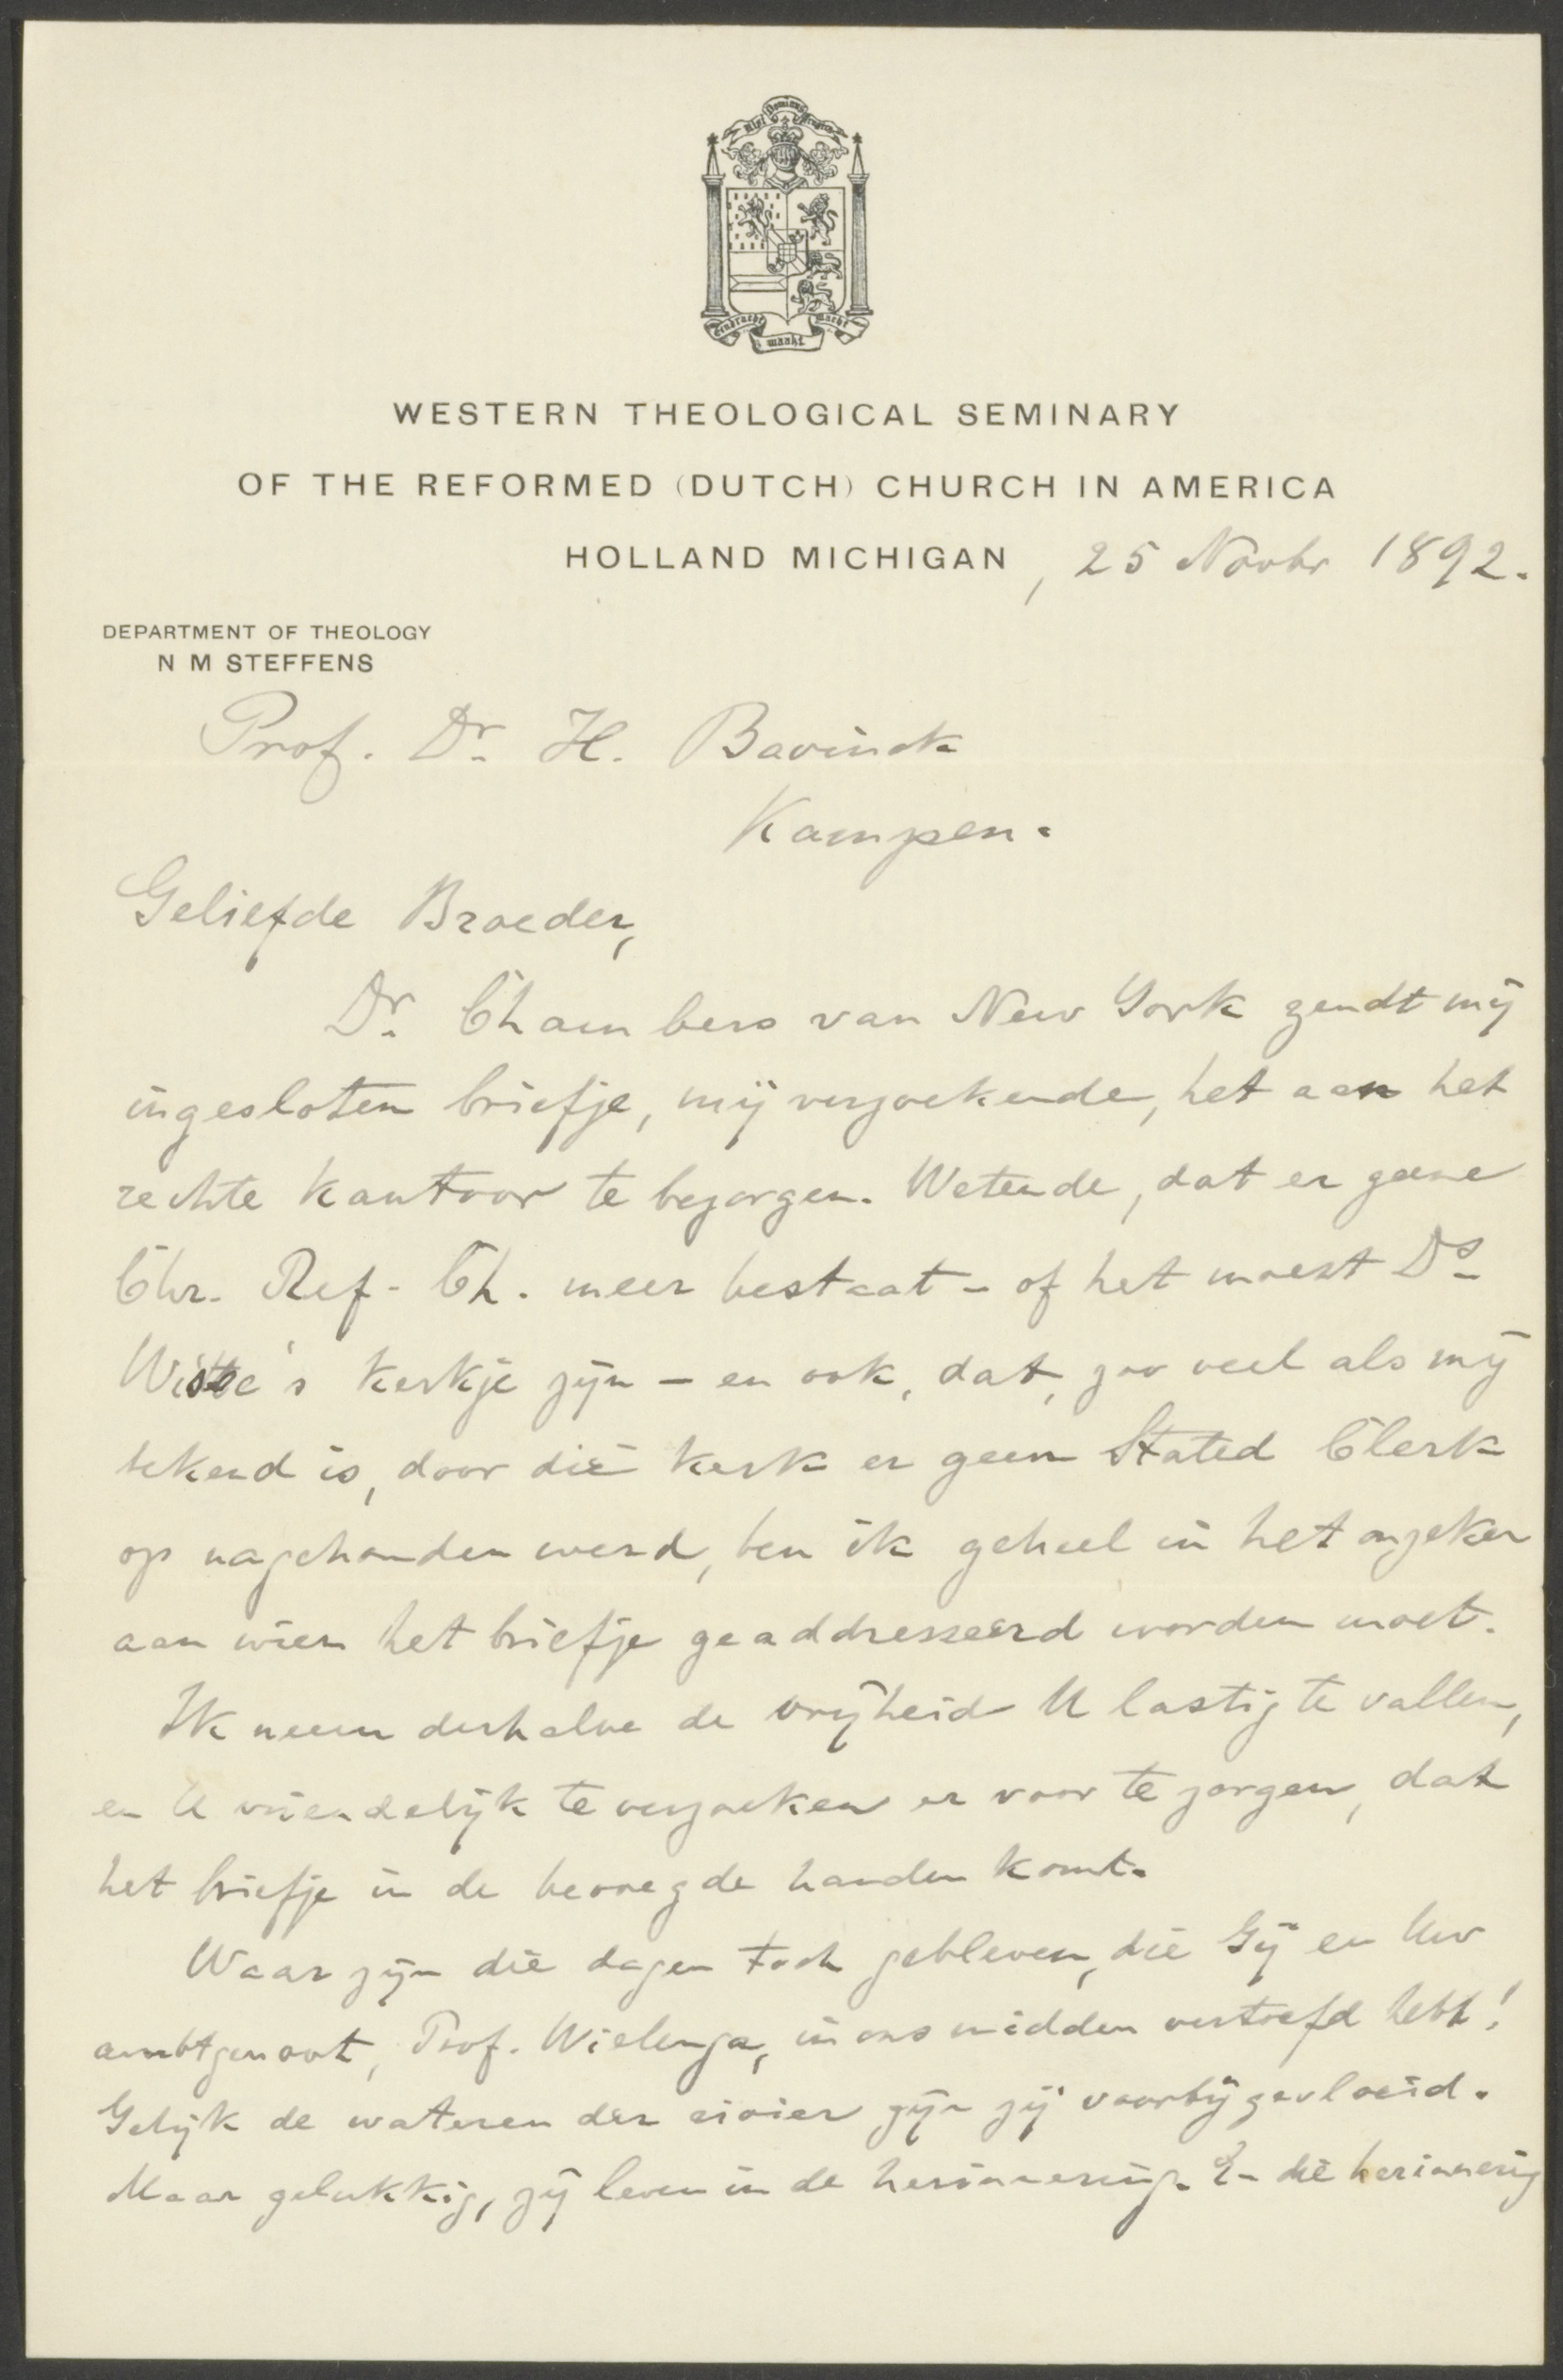 Nisi Dominus Frustra
Eendracht maakt macht
WESTERN THEOLOGICAL SEMINARY
OF THE REFORMED (DUTCH) CHURCH IN AMERICA
HOLLAND MICHIGAN, 25 Novbr 1892.
DEPARTMENT OF THEOLOGY
N M STEFFENS
Prof. Dr. H. Bavinck
Kampen.
Geliefde Broeder,
Dr. Chambers van New York zendt mij
ingesloten briefje, mij verzoekende, het aan het
rechte kantoor te bezorgen. Wetende, dat er geene
Chr. Ref. Ch. meer bestaat - of het moest Ds
Wisse's kerkje zijn - en ook, dat, zoo veel als mij
bekend is, door die kerk er geen Stated Clerk
op nagehouden werd, ben ik geheel in het onzeker
aan wien het briefje geaddresseerd worden moet.
Ik neem derhalve de vrijheid U lastig te vallen,
en U vriendelijk te verzoeken er voor te zorgen, dat
het briefje in de bevoegde handen komt.
Waar zijn die dagen toch gebleven, die Gij en Uw
ambtgenoot, Prof. Wielenga, in ons midden vertoefd hebt!
Gelijk de wateren der rivier zijn zij voorbijgevloeid.
Maar gelukkig, zij leven in de herinnering. En die herinnering